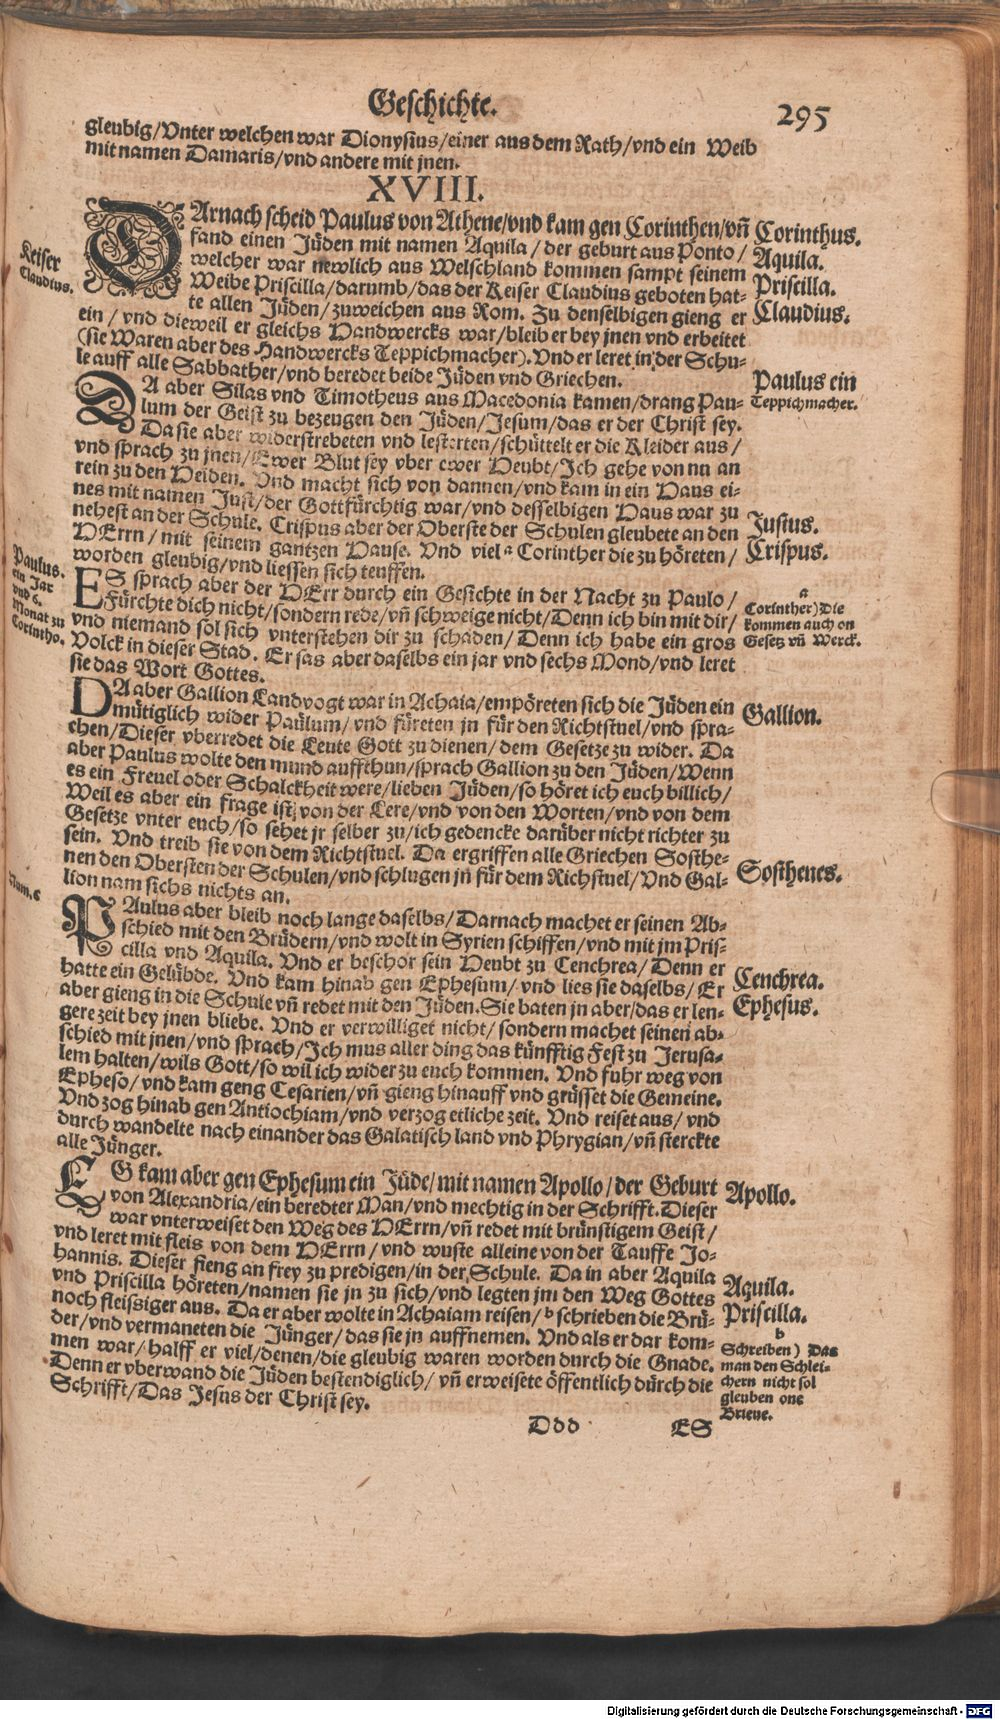 Geschichte. 295
gleubig/Vnter welchen war Dionysius/einer aus dem Rath/vnd ein Weib
mit namen Damaris/vnd andere mit jnen.
XVIII.
DArnach scheid Paulus von Athene/vnd kam gen Corinthen/vñ
fand einen Jüden mit namen Aquila/der geburt aus Ponto/
welcher war newlich aus Welschland kommen sampt seinem
Weibe Priscilla/darumb/das der Keiser Claudius geboten hat-
te allen Jüden/zuweichen aus Rom. Zu denselbigen gieng er
ein/vnd dieweil er gleichs Handwercks war/bleib er bey jnen vnd erbeitet
(sie Waren aber des Handwercks Teppichmacher). Vnd er leret in der Schu-
le auff alle Sabbather/vnd beredet beide Jüden vnd Griechen.
Corinthus.
Aquila.
Priscilla.
Claudius.
Keiser
Claudius.
Paulus ein
Teppichmacher.
DA aber Silas vnd Timotheus aus Macedonia kamen/drang Pau-
lum der Geist zu bezeugen den Jüden/Jesum/das er der Christ sey.
Da sie aber widerstrebeten vnd lesterten/schüttelt er die Kleider aus/
vnd sprach zu jnen/Ewer Blut sey vber ewer Heubt/Ich gehe von nu an
rein zu den Heiden. Vnd macht sich von dannen/vnd kam in ein Haus ei-
nes mit namen Just/der Gottfürchtig war/vnd desselbigen Haus war zu
nehest an der Schule. Crispus aber der Oberste der Schulen gleubete an den
HErrn/mit seinem gantzen Hause. Vnd viel a Corinther die zu höreten/
worden gleubig/vnd liessen sich teuffen.
Justus.
Crispus.
ES sprach aber der HErr durch ein Gesichte in der Nacht zu Paulo/
Fürchte dich nicht/sondern rede/vñ schweige nicht/Denn ich bin mit dir/
vnd niemand sol sich vnterstehen dir zu schaden/Denn ich habe ein gros
Volck in dieser Stad. Er sas aber daselbs ein jar vnd sechs Mond/vnd leret
sie das Wort Gottes.
Paulus.
ein Jar
vnd 6.
Monat zu
Corintho.
a
Corinther) Die
kommen auch on
Gesetz vñ Werck.
DA aber Gallion Landvogt war in Achaia/empöreten sich die Jüden ein
mütiglich wider Paulum/vnd füreten jn für den Richtstuel/vnd spra-
chen/Dieser vberredet die Leute Gott zu dienen/dem Gesetze zu wider. Da
aber Paulus wolte den mund auffthun/sprach Gallion zu den Jüden/Wenn
es ein Freuel oder Schalckheit were/lieben Jüden/so höret ich euch billich/
Weil es aber ein frage ist/von der Lere/vnd von den Worten/vnd von dem
Gesetze vnter euch/so sehet jr selber zu/ich gedencke darüber nicht richter zu
sein. Vnd treib sie von dem Richtstuel. Da ergriffen alle Griechen Sosthe-
nen den Obersten der Schulen/vnd schlugen jn für dem Richstuel/Vnd Gal-
lion nam sichs nichts an.
Gallion.
Sosthenes.
Num. 6
PAulus aber bleib noch lange daselbs/Darnach machet er seinen Ab-
schied mit den Brüdern/vnd wolt in Syrien schiffen/vnd mit jm Pris-
cilla vnd Aquila. Vnd er beschor sein Heubt zu Cenchrea/Denn er
hatte ein Gelübde. Vnd kam hinab gen Ephesum/vnd lies sie daselbs/Er
aber gieng in die Schule vñ redet mit den Jüden. Sie baten jn aber/das er len-
gere zeit bey jnen bliebe. Vnd er verwilliget nicht/sondern machet seinen ab-
schied mit jnen/vnd sprach/Ich mus aller ding das künfftig Fest zu Jerusa-
lem halten/wils Gott/so wil ich wider zu euch kommen. Vnd fuhr weg von
Epheso/vnd kam geng Cesarien/vñ gieng hinauff vnd grüsset die Gemeine.
Vnd zog hinab gen Antiochiam/vnd verzog etliche zeit. Vnd reiset aus/vnd
durch wandelte nach einander das Galatisch land vnd Phrygian/vñ sterckte
alle Jünger.
Cenchrea.
Ephesus.
ES kam aber gen Ephesum ein Jüde/mit namen Apollo/der Geburt
von Alexandria/ein beredter Man/vnd mechtig in der Schrifft. Dieser
war vnterweiset den Weg des HErrn/vñ redet mit brünstigem Geist/
vnd leret mit fleis von dem HErrn/vnd wuste alleine von der Tauffe Jo-
hannis. Dieser fieng an frey zu predigen/in der Schule. Da in aber Aquila
vnd Priscilla höreten/namen sie jn zu sich/vnd legten jm den Weg Gottes
noch fleissiger aus. Da er aber wolte in Achaiam reisen/b schrieben die Brü-
der/vnd vermaneten die Jünger/das sie jn auffnemen. Vnd als er dar kom-
men war/halff er viel/denen/die gleubig waren worden durch die Gnade.
Denn er vberwand die Jüden bestendiglich/vñ erweisete öffentlich dürch die
Schrifft/Das Jesus der Christ sey.
Apollo.
Aquila.
Priscilla.
b
Schreiben) Das
man den Schlei-
chern nicht sol
gleuben one
Brieue.
Ddd ES
Digitalisierung gefördert durch die Deutsche Forschungsgemeinschaft - DFG